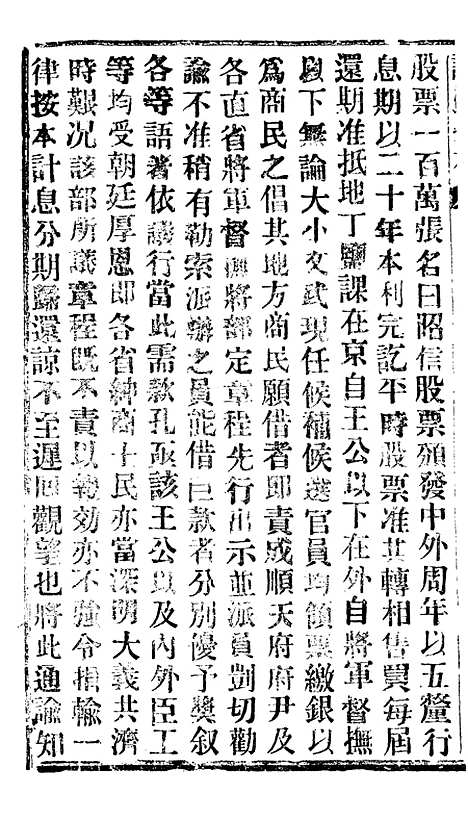 股票一百萬張名曰昭信股票頒發中外周年以五釐行
息期以二十年本利完訖平時股票准其轉相售買每屆
還期准抵地丁鹽課在京自王公以下在外自將軍督撫
以下無論大小文武現任候補候選官員均領票繳銀以
爲商民之倡其地方商民願借者即責成順天府府尹及
各直省將軍督撫將部定章程先行出示並派員剴切勸
諭不准稍有勒索派辦之員能借巨款者分別優予獎叙
各等語著依議行當此需款孔亟該王公以及內外臣工
等均受朝廷厚恩即各省紳商士民亦當深明大義共濟
時艱况該部所議章程旣不責以報効亦不強令捐輸一
律按本計息分期歸還諒不至遲回觀望也將此通諭知